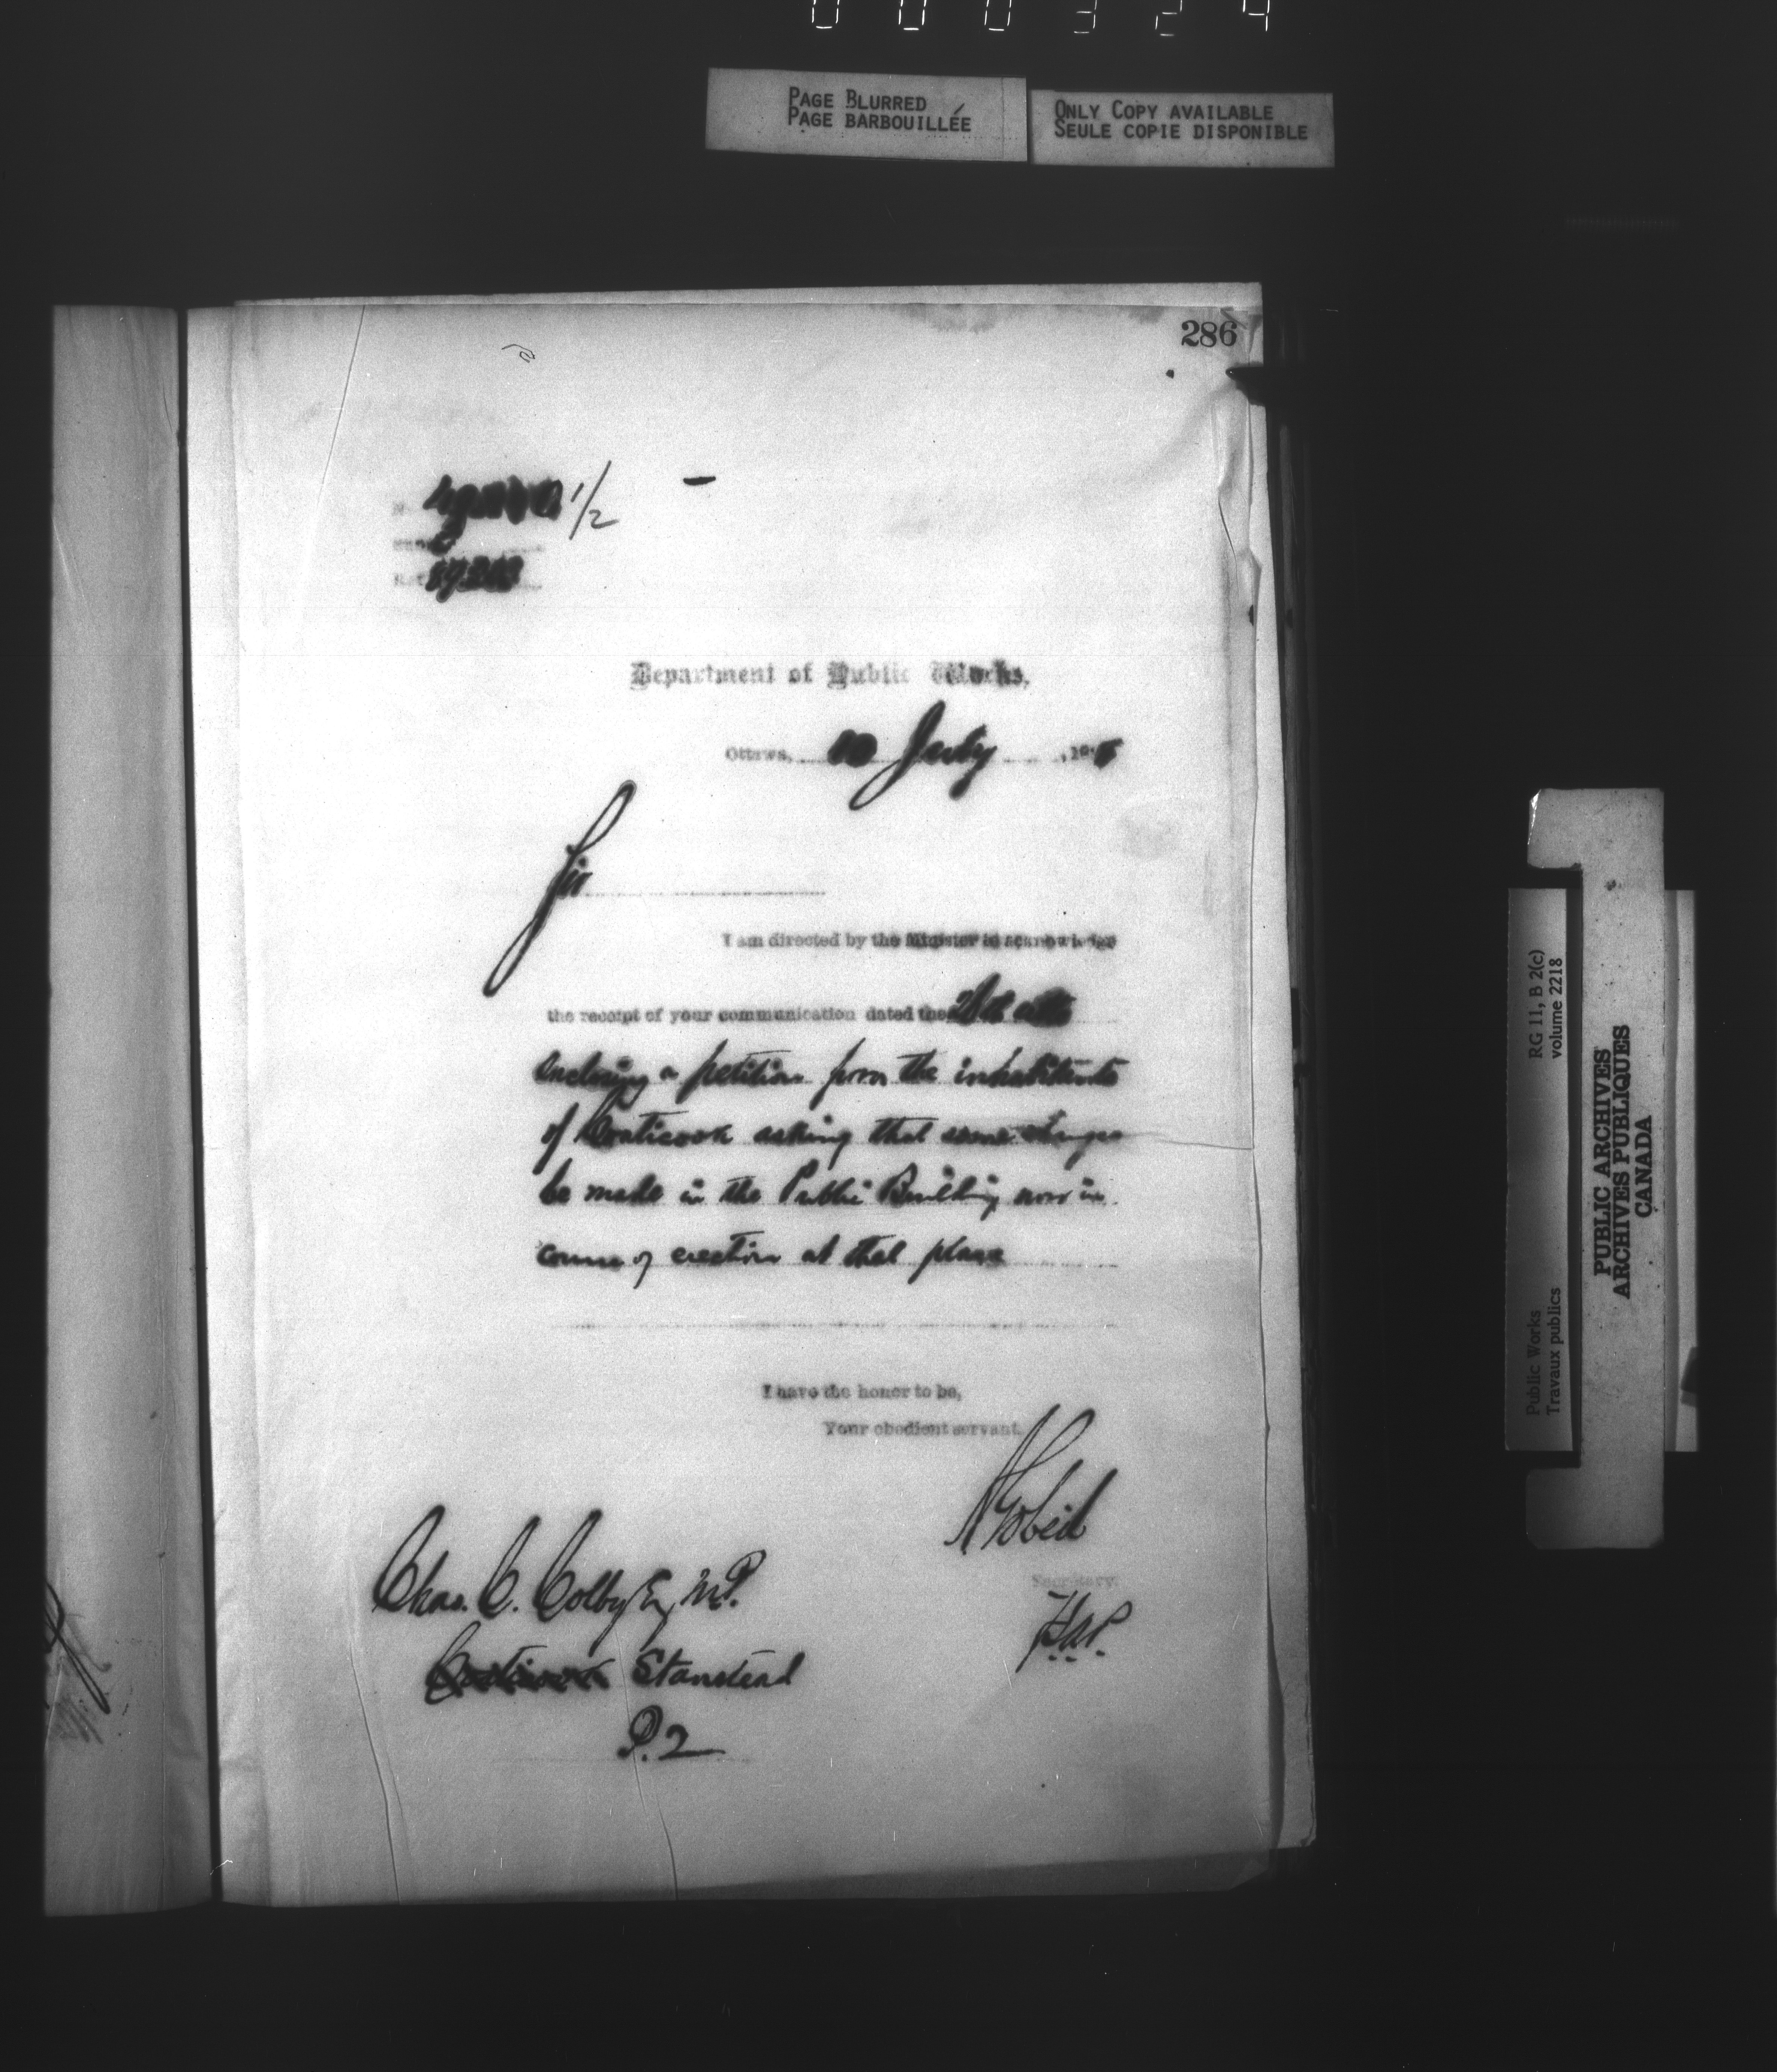 000324
PAGE BLURRED
PAGE BARBOUILLÉE
ONLY COPY AVAILABLE
SEULE COPIE DISPONIBLE
286
1/2
Department of Public Works,
Ottawa, 10 July
Sir
I am directed by the Minister to acknowledge
the receipt of your communication dated the
enclosing a petition from the inhabitants
of Coaticook asking that some changes
be made in the Public Building now in
course of erection at that place
I have the honor to be,
Your obedient servant,
A Gobeil
Secretary.
Chas. C. Colby Esq M.P.
H.A.P.
Coaticook Stanstead
P.2
RG 11, B 2(c)
volume 2218
Public Works
Travaux publics
PUBLIC ARCHIVES
ARCHIVES PUBLIQUES
CANADA